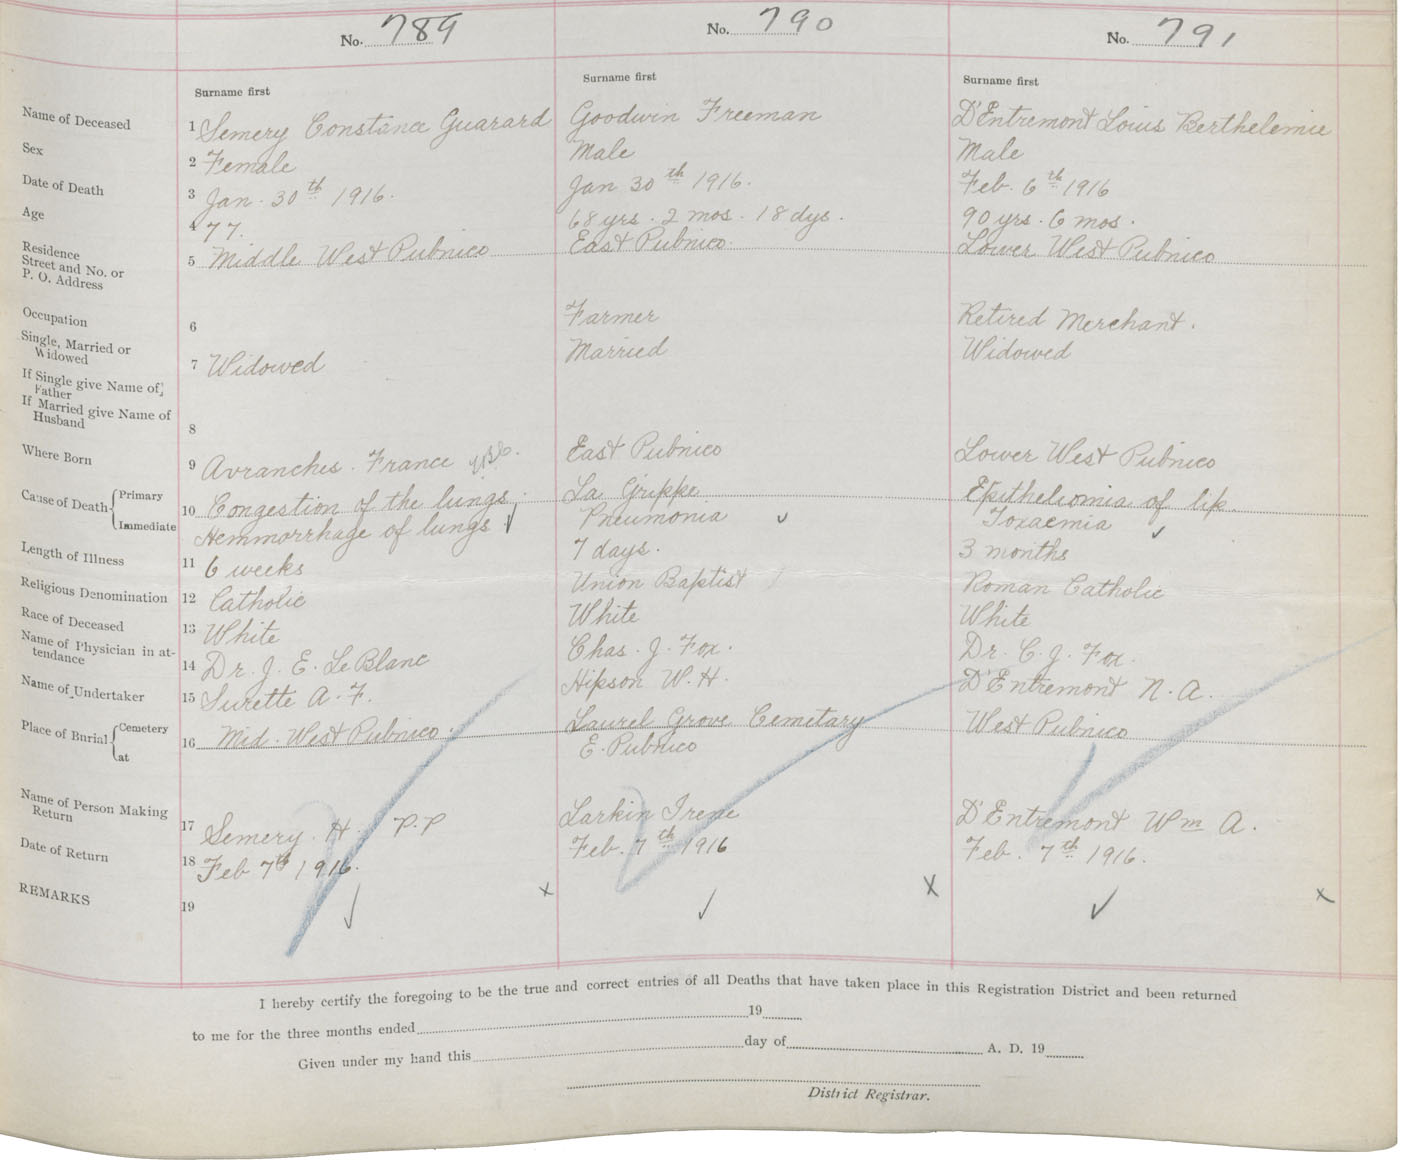 No. 789 No. 790 No. 791
Surname first Surname first Surname first
Name of Deceased 1 Semery Constance Guarard Goodwin Freeman D'Entremont Louis Berthelemie
Sex 2 Female Male Male
Date of Death 3 Jan. 30th 1916. Jan 30th 1916. Feb. 6th 1916
Age 4 77. 68 yrs. 2 mos. 18 dys. 90 yrs. 6 mos.
Residence
Street and No. or
P. O. Address 5 Middle West Pubnico East Pubnico. Lower West Pubnico
Occupation 6 Farmer Retired Merchant.
Single, Married or
Widowed 7 Widowed Married Widowed
If Single give Name of
Father
If Married give Name of
Husband 8
Where Born 9 Avranches. France East Pubnico Lower West Pubnico
Cause of Death Primary 10 Congestion of the lungs La Grippe Epitheliomia of lip.
Immediate Hemmorrhage of lungs Pneumonia Toxaemia
Length of Illness 11 6 weeks 7 days. 3 months
Religious Denomination 12 Catholic Union Baptist Roman Catholic
Race of Deceased 13 White White White
Name of Physician in at-
tendance 14 Dr. J. E. LeBlanc Chas. J. Fox. Dr. C. J. Fox.
Name of Undertaker 15 Surette A. F. Hipson W. H. D'Entremont N. A.
Place of Burial Cemetery 16 Mid. West Pubnico. Laurel Grove Cemetary West Pubnico
at E. Pubnico
Name of Person Making
Return 17 Semery. H. P.P Larkin Irene D'Entremont Wm A.
Date of Return 18 Feb 7th 1916. Feb. 7th 1916 Feb. 7th 1916.
REMARKS 19
I hereby certify the foregoing to be the true and correct entries of all Deaths that have taken place in this Registration District and been returned
to me for the three months ended 19
Given under my hand this day of A. D. 19
District Registrar.